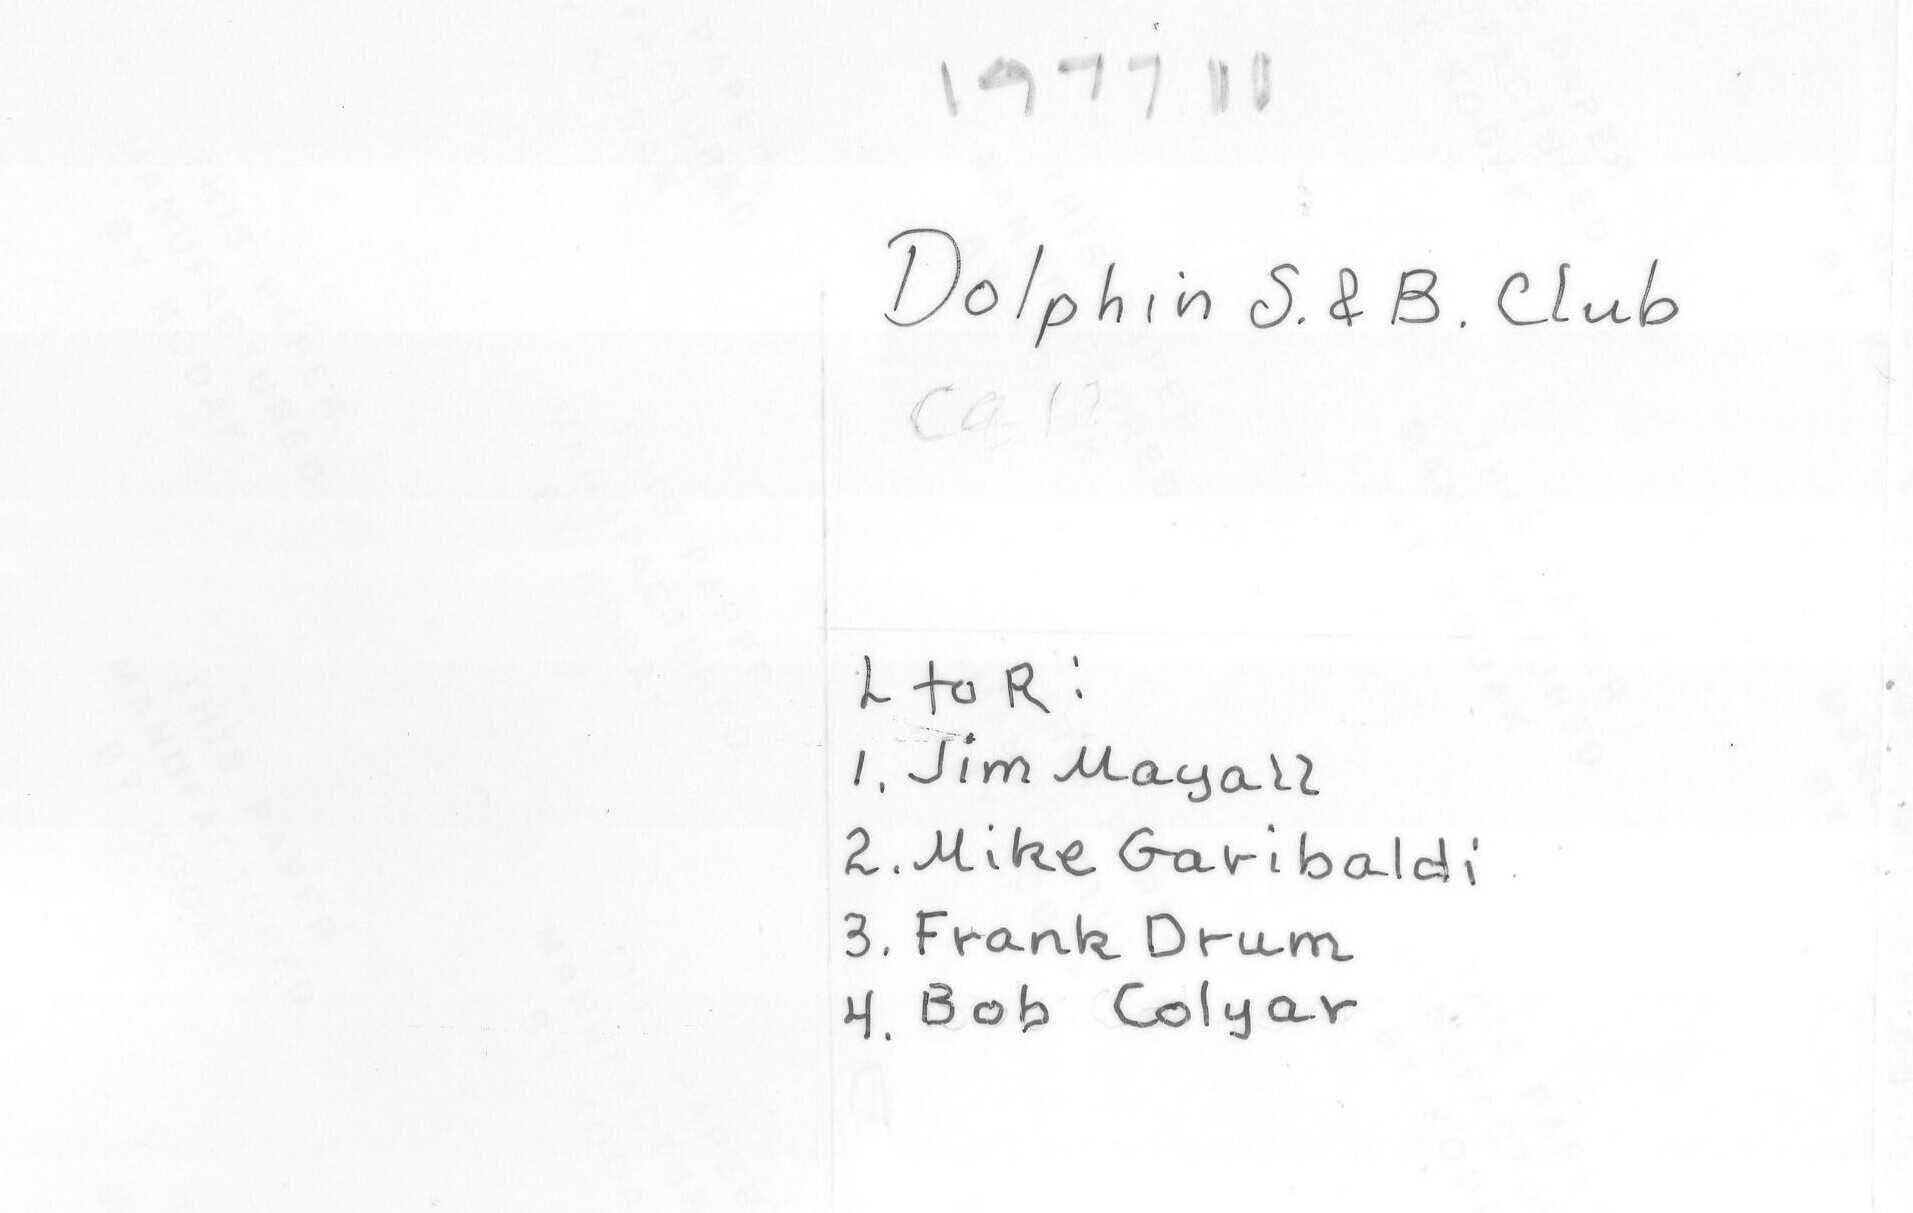 1977 11
Dolphin S. & B. Club
L to R:
1. Jim Mayall
2. Mike Garibaldi
3. Frank Drum
4. Bob Colyar